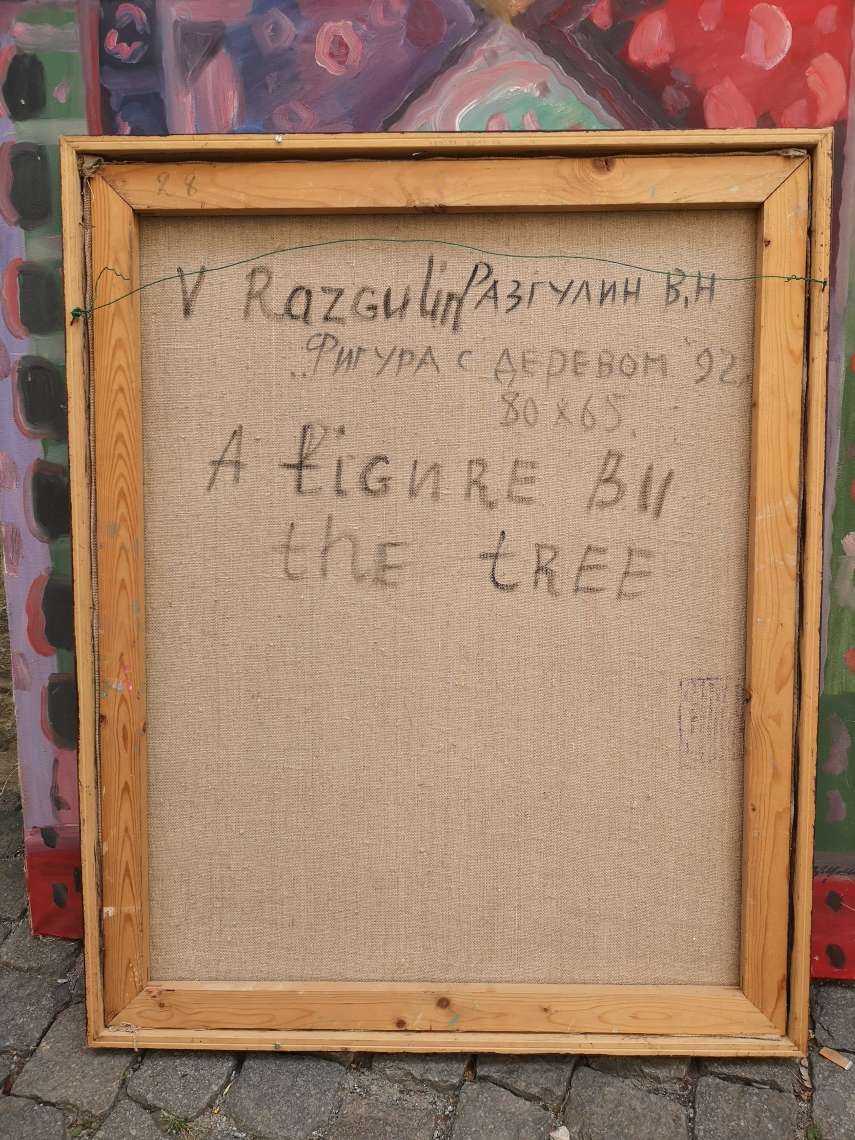 28
V Razgulin Разгулин В.Н
"Фигура с деревом" 92.
80x65.
A figure By
the tree